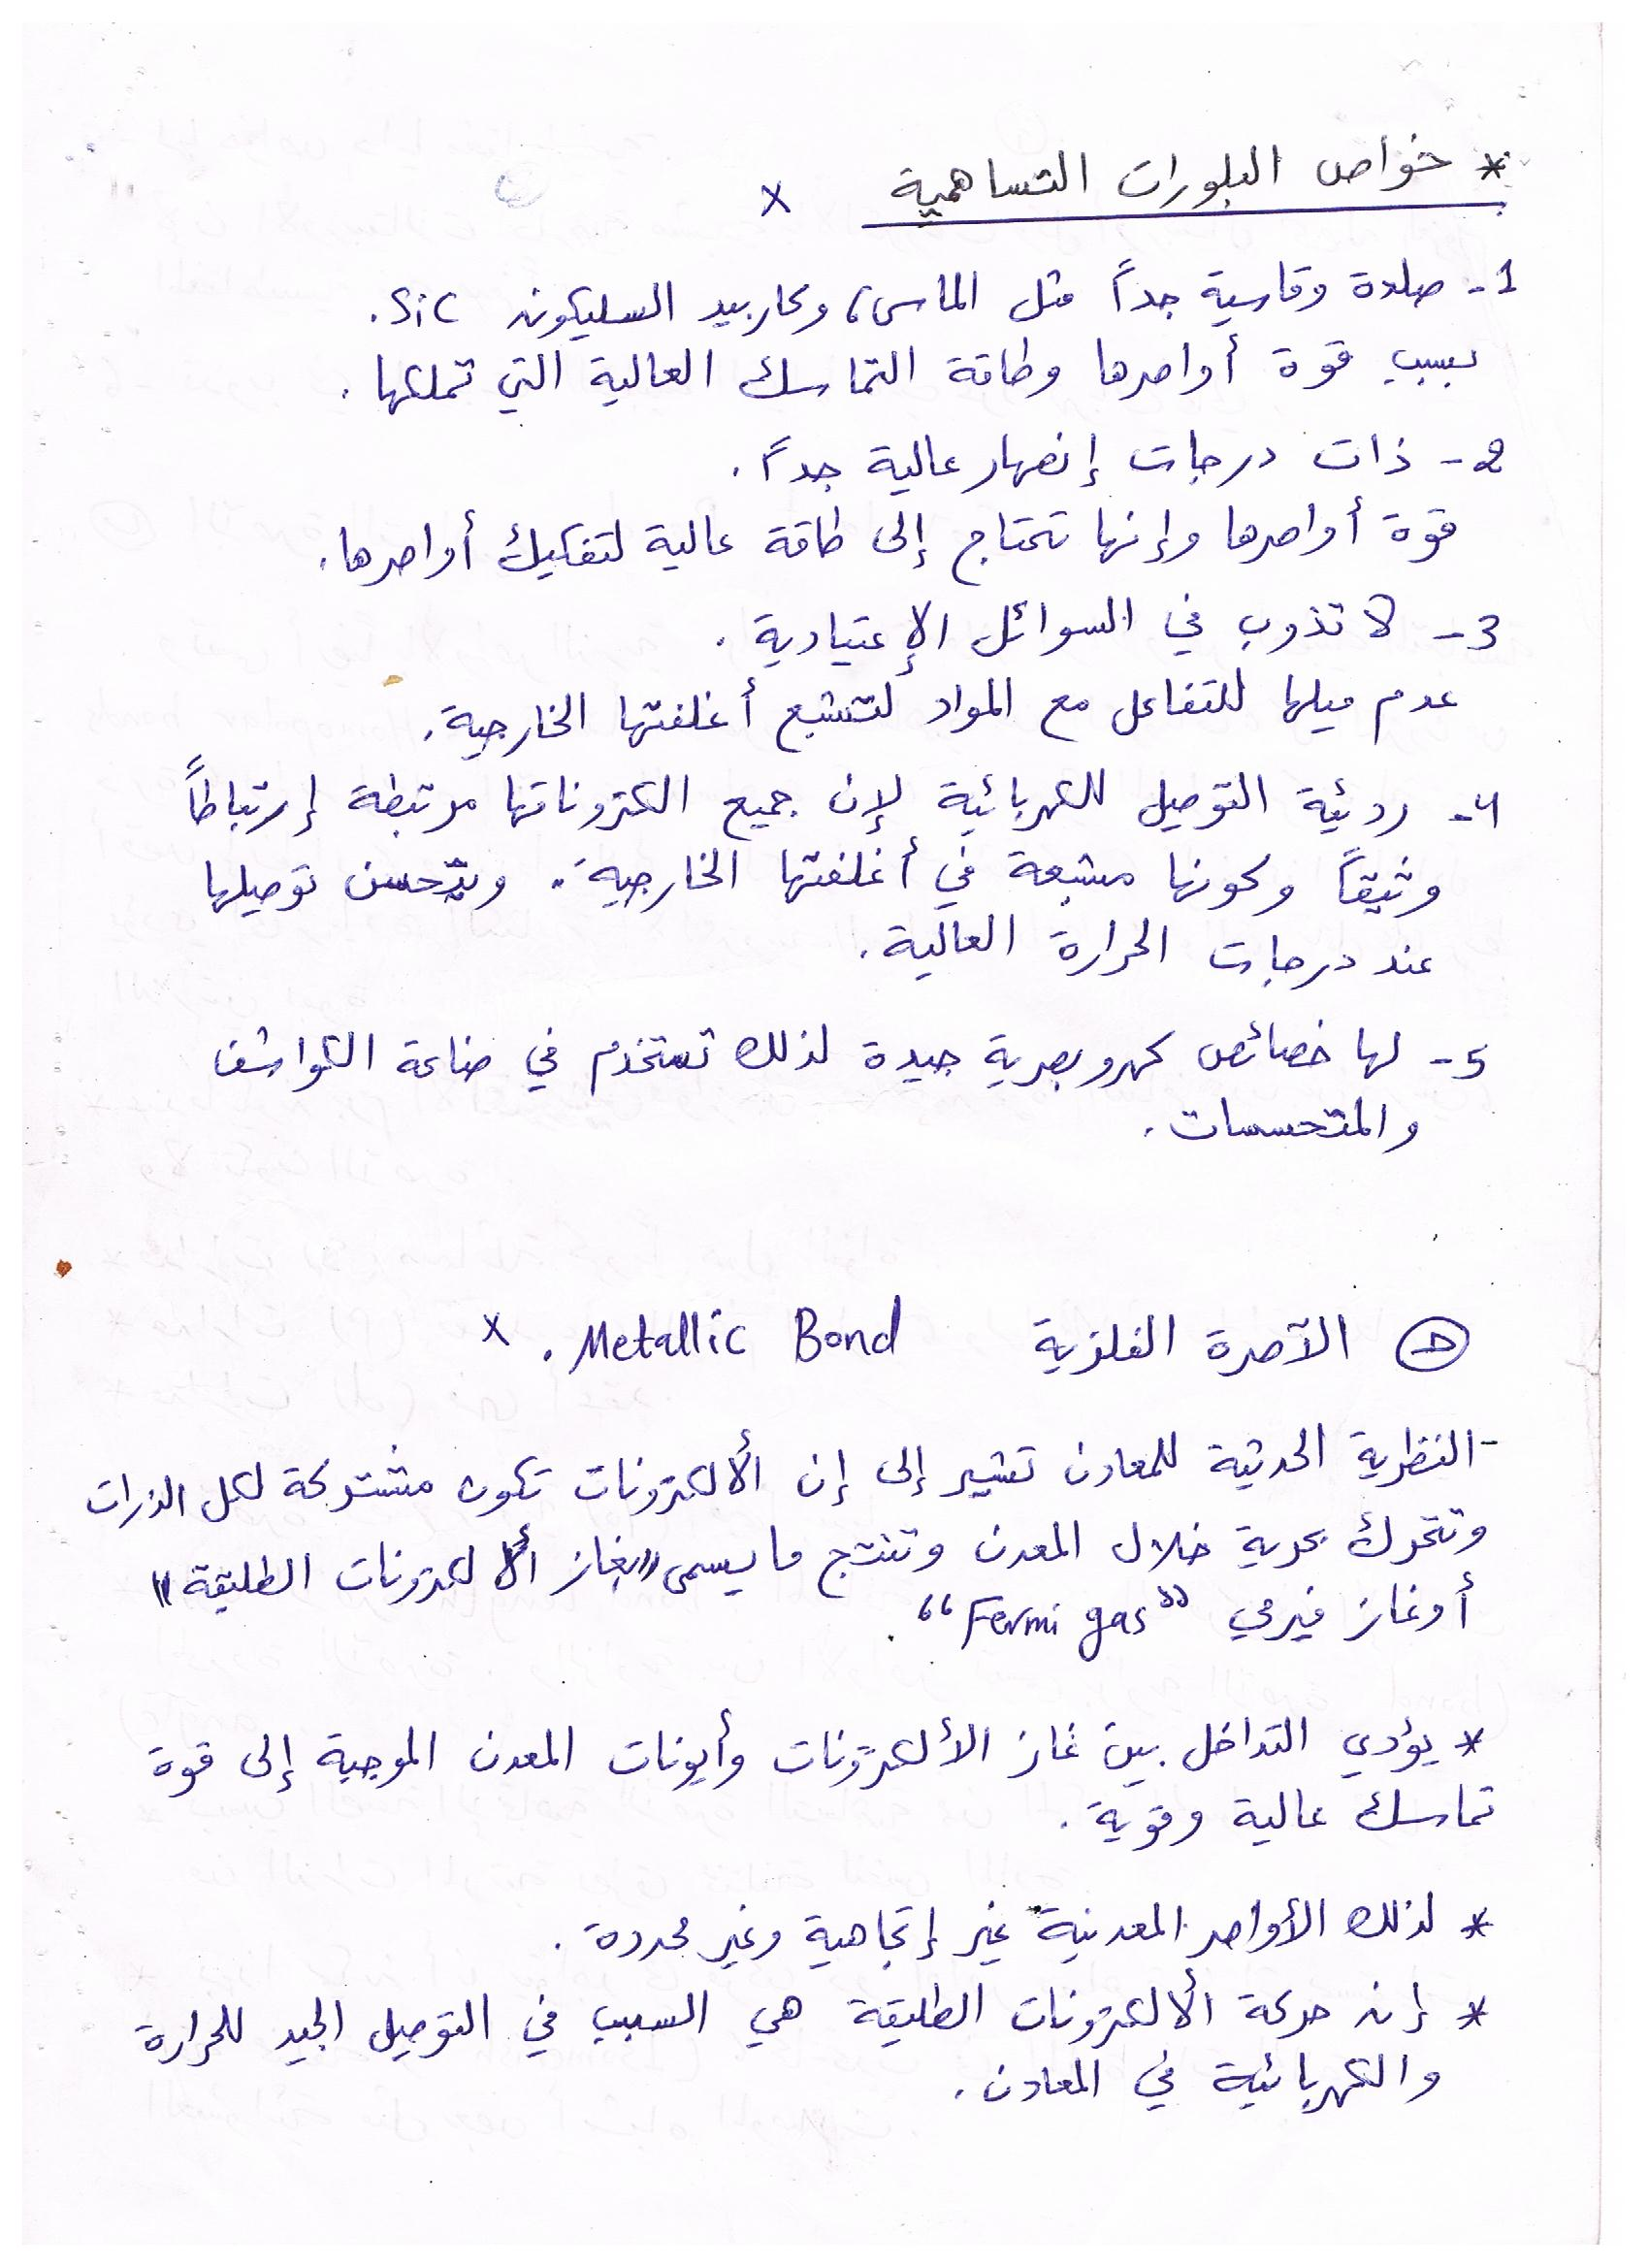 * خواص البلورات التساهمية x
1- صلدة وقاسية جداً مثل الماس، وكاربيد السليكون SiC.
بسبب قوة أواصرها وطاقة التماسك العالية التي تملكها.
2- ذات درجات إنصهار عالية جداً.
قوة أواصرها وإنها تحتاج إلى طاقة عالية لتفكيك أواصرها.
3- لا تذوب في السوائل الإعتيادية.
عدم ميلها للتفاعل مع المواد لتشبع أغلفتها الخارجية.
4- رديئة التوصيل للكهربائية لإن جميع الكتروناتها مرتبطة إرتباطاً
وثيقاً وكونها مشبعة في أغلفتها الخارجية. ويتحسن توصيلها
عند درجات الحرارة العالية.
5- لها خصائص كهروبصرية جيدة لذلك تستخدم في صناعة الكواشف
والمتحسسات.
الآصرة الفلزية Metallic Bond. x
- النظرية الحديثة للمعادن تشير إلى إن ألالكترونات تكون مشتركة لكل الذرات
وتتحرك بحرية خلال المعدن وتنتج ما يسمى "بغاز ألالكترونات الطليقة"
أو غاز فيرمي "Fermi gas".
* يؤدي التداخل بين غاز الألكترونات وأيونات المعدن الموجبة إلى قوة
تماسك عالية وقوية.
* لذلك الأواصر المعدنية غير إتجاهية وغير محددة.
* إن حركة ألالكترونات الطليقة هي السبب في التوصيل الجيد للحرارة
والكهربائية في المعادن.